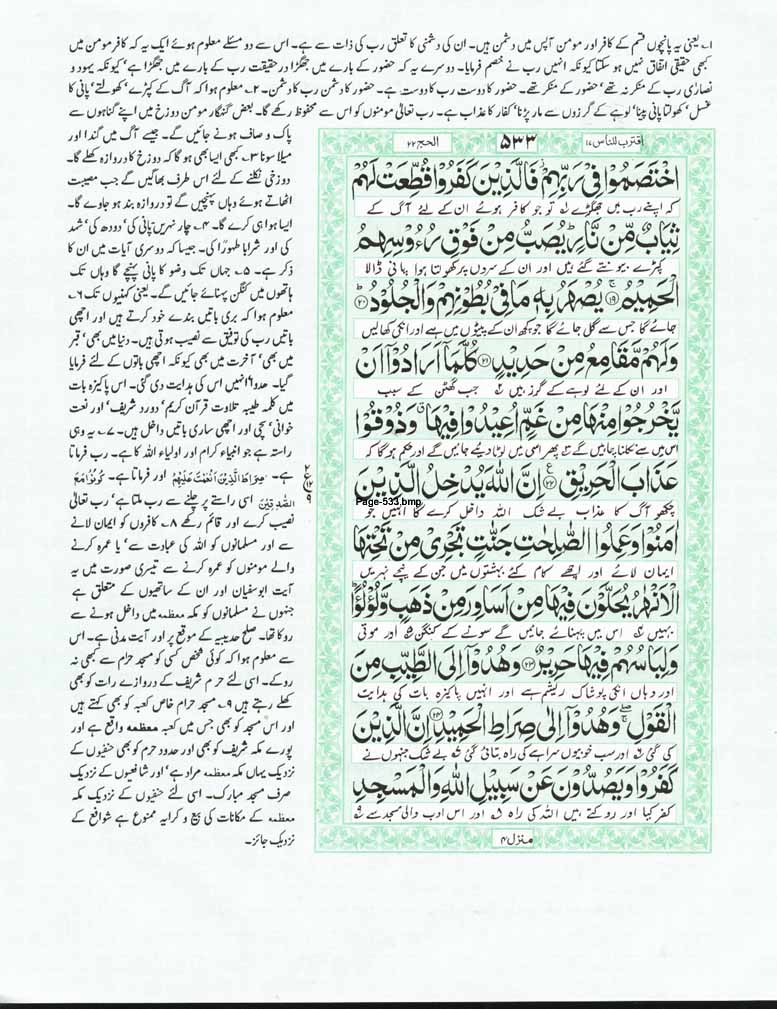 ۱۔ یعنی یہ پانچوں قسم کے کافر اور مومن آپس میں دشمن ہیں۔ ان کی دشمنی کا تعلق رب کی ذات سے ہے۔ اس سے دو مسئلے معلوم ہوئے ایک یہ کہ کافر مومن میں
کبھی حقیقی اتفاق نہیں ہو سکتا کیونکہ انہیں رب نے خصم فرمایا۔ دوسرے یہ کہ حضور کے بارے میں جھگڑا در حقیقت رب کے بارے میں جھگڑا ہے' کیونکہ یہود و
نصاریٰ رب کے منکر نہ تھے' حضور کے منکر تھے۔ حضور کا دوست رب کا دوست ہے۔ حضور کا دشمن رب کا دشمن۔ ۲۔ معلوم ہوا کہ آگ کے کپڑے' کھولتے' پانی کا
غسل' کھولتا پانی پینا' لوہے کے گرزوں سے مار پڑنا' کفار کا عذاب ہے۔ رب تعالیٰ مومنوں کو اس سے محفوظ رکھے گا۔ بعض گنہگار مومن دوزخ میں اپنے گناہوں سے
پاک و صاف ہونے جائیں گے۔ جیسے آگ میں گندا اور
میلا سونا ۳۔ کبھی ایسا بھی ہو گا کہ دوزخ کا دروازہ کھلے گا۔
دوزخی نکلنے کے لئے اس طرف بھاگیں گے جب مصیبت
اٹھاتے ہوئے وہاں پہنچیں گے تو دروازہ بند ہو جاوے گا۔
ایسا ہوا ہی کرے گا۔ ۴۔ چار نہریں' پانی کی' دودھ کی' شہد
کی اور شرابا طہورا کی۔ جیسا کہ دوسری آیات میں ان کا
ذکر ہے۔ ۵۔ جہاں تک وضو کا پانی پہنچے گا وہاں تک
ہاتھوں میں کنگن پہنائے جائیں گے۔ یعنی کہنیوں تک ۶۔
معلوم ہوا کہ بری باتیں بندے خود کرتے ہیں اور اچھی
باتیں رب کی توفیق سے نصیب ہوتی ہیں۔ دنیا میں بھی' قبر
میں بھی' آخرت میں بھی کیونکہ اچھی باتوں کے لئے فرمایا
گیا۔ ھدوا انہیں اس کی ہدایت دی گئی۔ اس پاکیزہ بات
میں کلمہ طیبہ تلاوت قرآن کریم' درود شریف' اور نعت
خوانی' سچی اور اچھی ساری باتیں داخل ہیں۔ ۷۔ یہ وہی
راستہ ہے جو انبیاء کرام اور اولیاء اللہ کا ہے۔ رب فرماتا
ہے۔ صِرَاطَ الَّذِیْنَ اَنْعَمْتَ عَلَیْهِمْ اور فرماتا ہے۔ كُوْنُوْا مَعَ
الصّٰدِقِیْنَ اسی راستے پر چلنے سے رب ملتا ہے' رب تعالیٰ
نصیب کرے اور قائم رکھے ۸۔ کافروں کو ایمان لانے
سے اور مسلمانوں کو اللہ کی عبادت سے' یا عمرہ کرنے
والے مومنوں کو عمرہ کرنے سے تیسری صورت میں یہ
آیت ابوسفیان اور ان کے ساتھیوں کے متعلق ہے
جنہوں نے مسلمانوں کو مکہ معظمہ میں داخل ہونے سے
روکا تھا۔ صلح حدیبیہ کے موقع پر اور آیت مدنی ہے۔ اس
سے معلوم ہوا کہ کوئی شخص کسی کو مسجد حرام سے کبھی نہ
روکے۔ اسی لئے حرم شریف کے دروازے رات کو بھی
کھلے رہتے ہیں ۹۔ مسجد حرام خاص کعبہ کو بھی کہتے ہیں
اور اس مسجد کو بھی جس میں کعبہ معظمہ واقع ہے اور
پورے مکہ شریف کو بھی اور حدود حرم کو بھی حنفیوں کے
نزدیک یہاں مکہ معظمہ مراد ہے' اور شافعیوں کے نزدیک
صرف مسجد مبارک۔ اسی لئے حنفیوں کے نزدیک مکہ
معظمہ کے مکانات کی بیع و کرایہ ممنوع ہے شوافع کے
نزدیک جائز۔
اقترب للناس ۱۷ ۵۳۳ الحج ۲۲
اخْتَصَمُوْا فِیْ رَبِّهِمْ ؗ فَالَّذِیْنَ كَفَرُوْا قُطِّعَتْ لَهُمْ
کہ اپنے رب میں جھگڑے ۱ تو جو کافر ہوئے ان کے لئے آگ کے
ثِیَابٌ مِّنْ نَّارٍ ؕ یُصَبُّ مِنْ فَوْقِ رُءُوْسِهِمُ
کپڑے بیونتے گئے ہیں اور ان کے سروں پر کھولتا ہوا پانی ڈالا
الْحَمِیْمُ ۚ ۱۹ یُصْهَرُ بِهٖ مَا فِیْ بُطُوْنِهِمْ وَ الْجُلُوْدُ ؕ ۲۰
جائے گا جس سے گل جائے گا جو کچھ ان کے پیٹوں میں ہے اور انکی کھالیں
وَ لَهُمْ مَّقَامِعُ مِنْ حَدِیْدٍ ۲۱ كُلَّمَاۤ اَرَادُوْۤا اَنْ
اور ان کے لئے لوہے کے گرز ہیں ۲ جب گھٹن کے سبب
یَّخْرُجُوْا مِنْهَا مِنْ غَمٍّ اُعِیْدُوْا فِیْهَا ۗ وَ ذُوْقُوْا
اس میں سے نکلنا چاہیں گے ۳ پھر اسی میں لوٹا دیئے جائیں گے اور حکم ہوگا کہ
عَذَابَ الْحَرِیْقِ ۠ ۲۲ اِنَّ اللّٰهَ یُدْخِلُ الَّذِیْنَ
Page-533.bmp
چکھو آگ کا عذاب بے شک اللہ داخل کرے گا انہیں جو
اٰمَنُوْا وَ عَمِلُوا الصّٰلِحٰتِ جَنّٰتٍ تَجْرِیْ مِنْ تَحْتِهَا
ایمان لائے اور اچھے کام کئے بہشتوں میں جن کے نیچے نہریں
الْاَنْهٰرُ یُحَلَّوْنَ فِیْهَا مِنْ اَسَاوِرَ مِنْ ذَهَبٍ وَّ لُؤْلُؤًا ؕ
بہیں ۴ اس میں پہنائے جائیں گے سونے کے کنگن ۵ اور موتی
وَ لِبَاسُهُمْ فِیْهَا حَرِیْرٌ ۲۳ وَ هُدُوْۤا اِلَى الطَّیِّبِ مِنَ
اور وہاں انکی پوشاک ریشم ہے اور انہیں پاکیزہ بات کی ہدایت
الْقَوْلِ ۖۚ وَ هُدُوْۤا اِلٰى صِرَاطِ الْحَمِیْدِ ۲۴ اِنَّ الَّذِیْنَ
کی گئی ۶ اور سب خوبیوں سراہے کی راہ بتائی گئی ۷ بے شک جنہوں نے
كَفَرُوْا وَ یَصُدُّوْنَ عَنْ سَبِیْلِ اللّٰهِ وَ الْمَسْجِدِ
کفر کیا اور روکتے ہیں اللہ کی راہ ۸ اور اس ادب والی مسجد سے ۹
منزل ۴